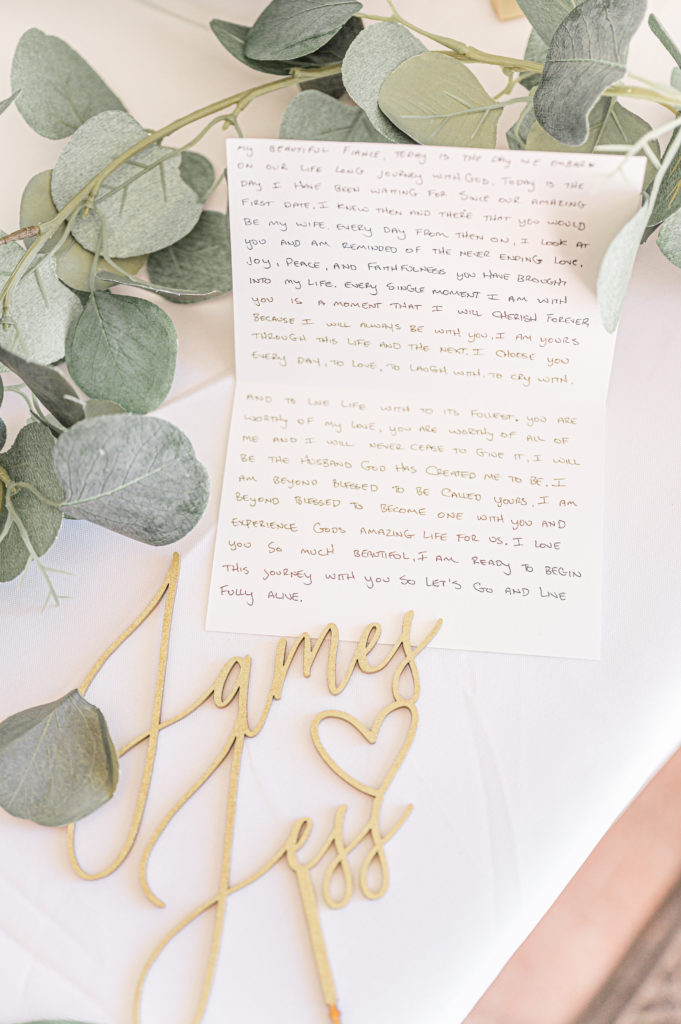 MY BEAUTIFUL FIANCE, TODAY IS THE DAY WE EMBARK
ON OUR LIFE LONG JOURNEY WITH GOD. TODAY IS THE
DAY I HAVE BEEN WAITING FOR SINCE OUR AMAZING
FIRST DATE. I KNEW THEN AND THERE THAT YOU WOULD
BE MY WIFE. EVERY DAY FROM THEN ON, I LOOK AT
YOU AND AM REMINDED OF THE NEVER ENDING LOVE,
JOY, PEACE, AND FAITHFULNESS YOU HAVE BROUGHT
INTO MY LIFE. EVERY SINGLE MOMENT I AM WITH
YOU IS A MOMENT THAT I WILL CHERISH FOREVER
BECAUSE I WILL ALWAYS BE WITH YOU. I AM YOURS
THROUGH THIS LIFE AND THE NEXT. I CHOOSE YOU
EVERY DAY, TO LOVE, TO LAUGH WITH, TO CRY WITH,
AND TO LIVE LIFE WITH TO ITS FULLEST. YOU ARE
WORTHY OF MY LOVE, YOU ARE WORTHY OF ALL OF
ME AND I WILL NEVER CEASE TO GIVE IT. I WILL
BE THE HUSBAND GOD HAS CREATED ME TO BE. I
AM BEYOND BLESSED TO BE CALLED YOURS. I AM
BEYOND BLESSED TO BECOME ONE WITH YOU AND
EXPERIENCE GODS AMAZING LIFE FOR US. I LOVE
YOU SO MUCH BEAUTIFUL. I AM READY TO BEGIN
THIS JOURNEY WITH YOU SO LET'S GO AND LIVE
FULLY ALIVE.
James
Jess